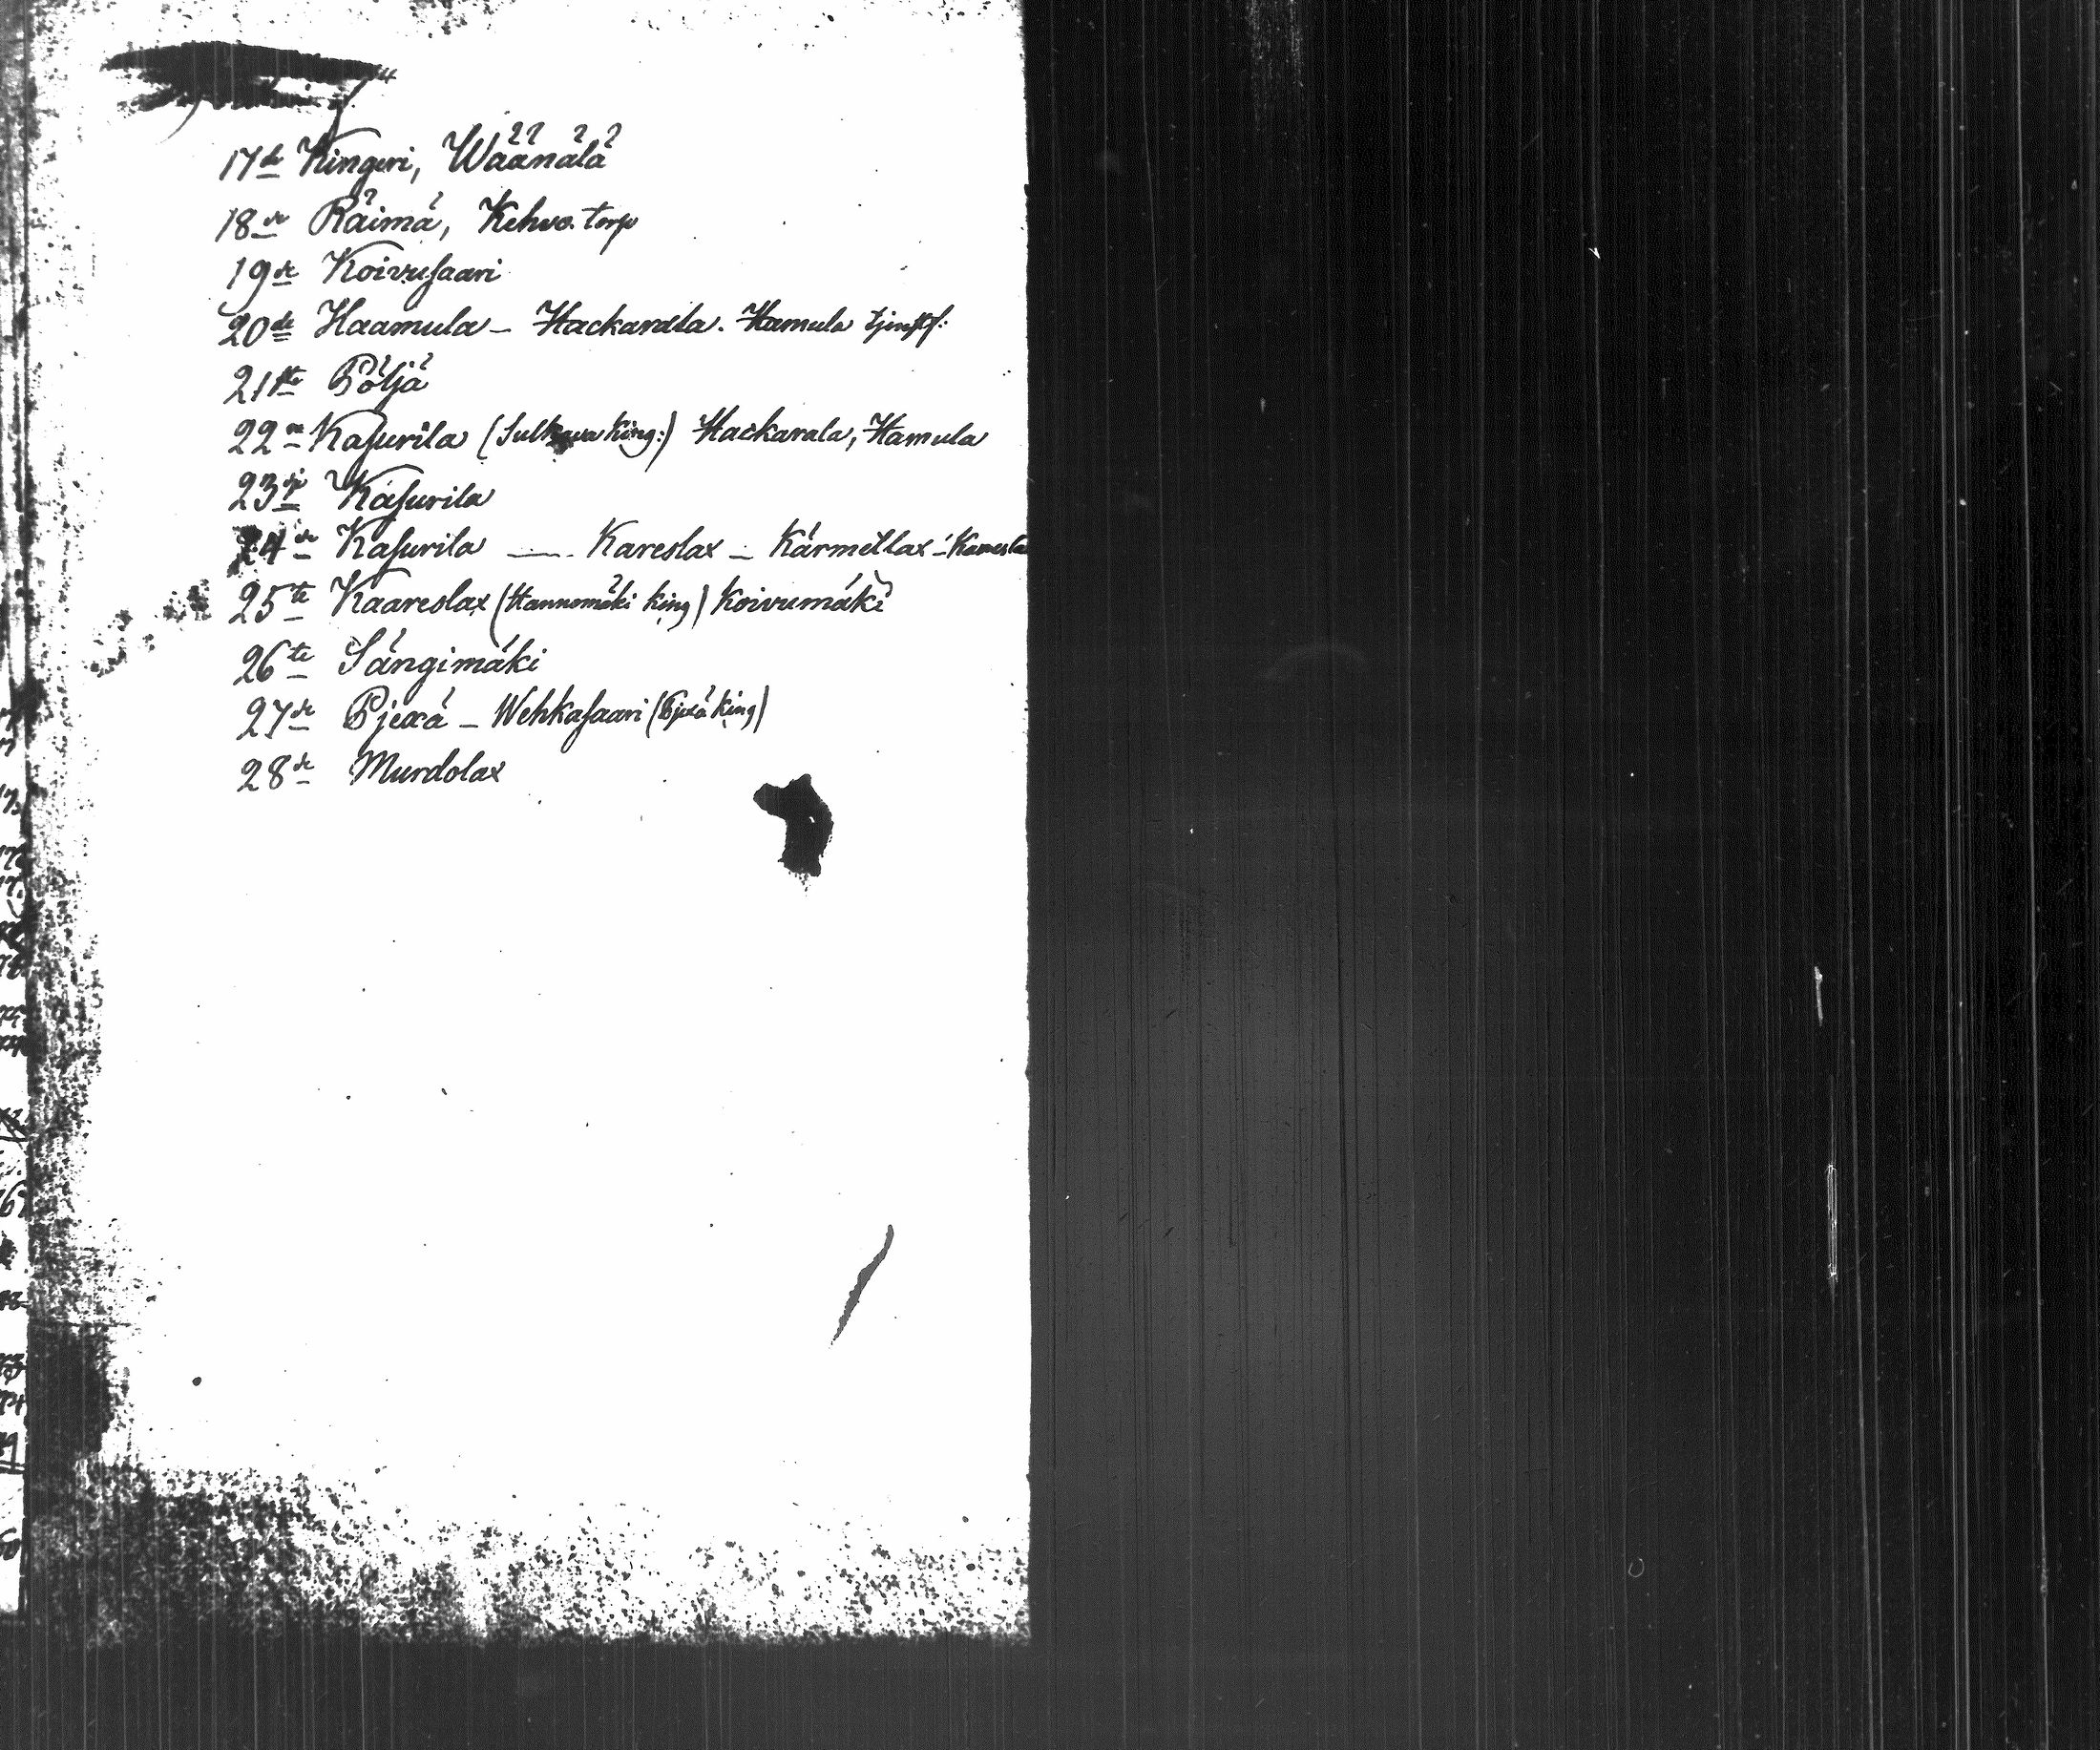 17de Kingeri, Wäänälä
18de Räimä, Kehvo. torp
19de Koivusaari
20de Haamula – Hackarala. Hamula
21ste Pöljä
22ra Kasurila (Sulkava King:) Hackarala, Hamula
23dje Kasurila
24de Kasurila —— Kareslax – Kärmetlax –
25te Kaareslax (Hannomäki King) Koivumäki
26te Sängimäki
27de Pjexä – Wehkasaari (Pjexä King)
28de Murdolax